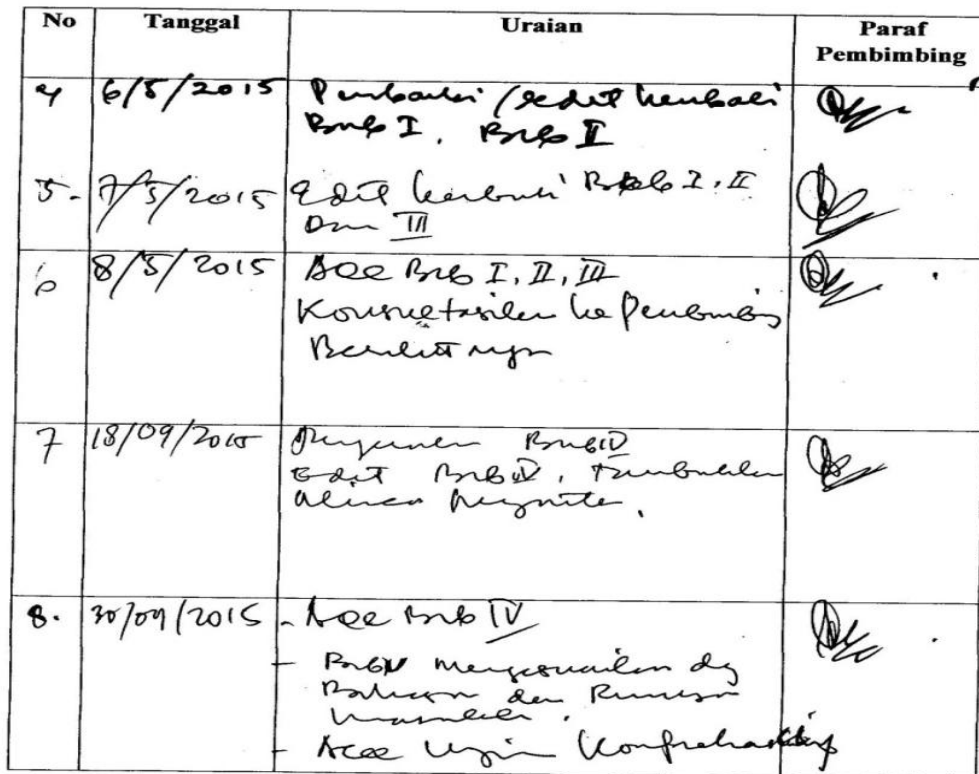 No Tanggal Uraian Paraf Pembimbing
4 6/5/2015 Perbaiki / edit kembali
Bab I, Bab II
5. 7/5/2015 Edit kembali Bab I, II
Dan III
6 8/5/2015 Acc Bab I, II, III
Konsultasikan ke Pembimbing
Berikutnya
7 18/09/2015 Bab IV
Edit Bab IV, Tambahkan
8. 30/09/2015 - Acc Bab IV
- Bab V menyesuaikan dg
Bahasan dan Rumusan
masalah.
- Acc Ujian Komprehensif